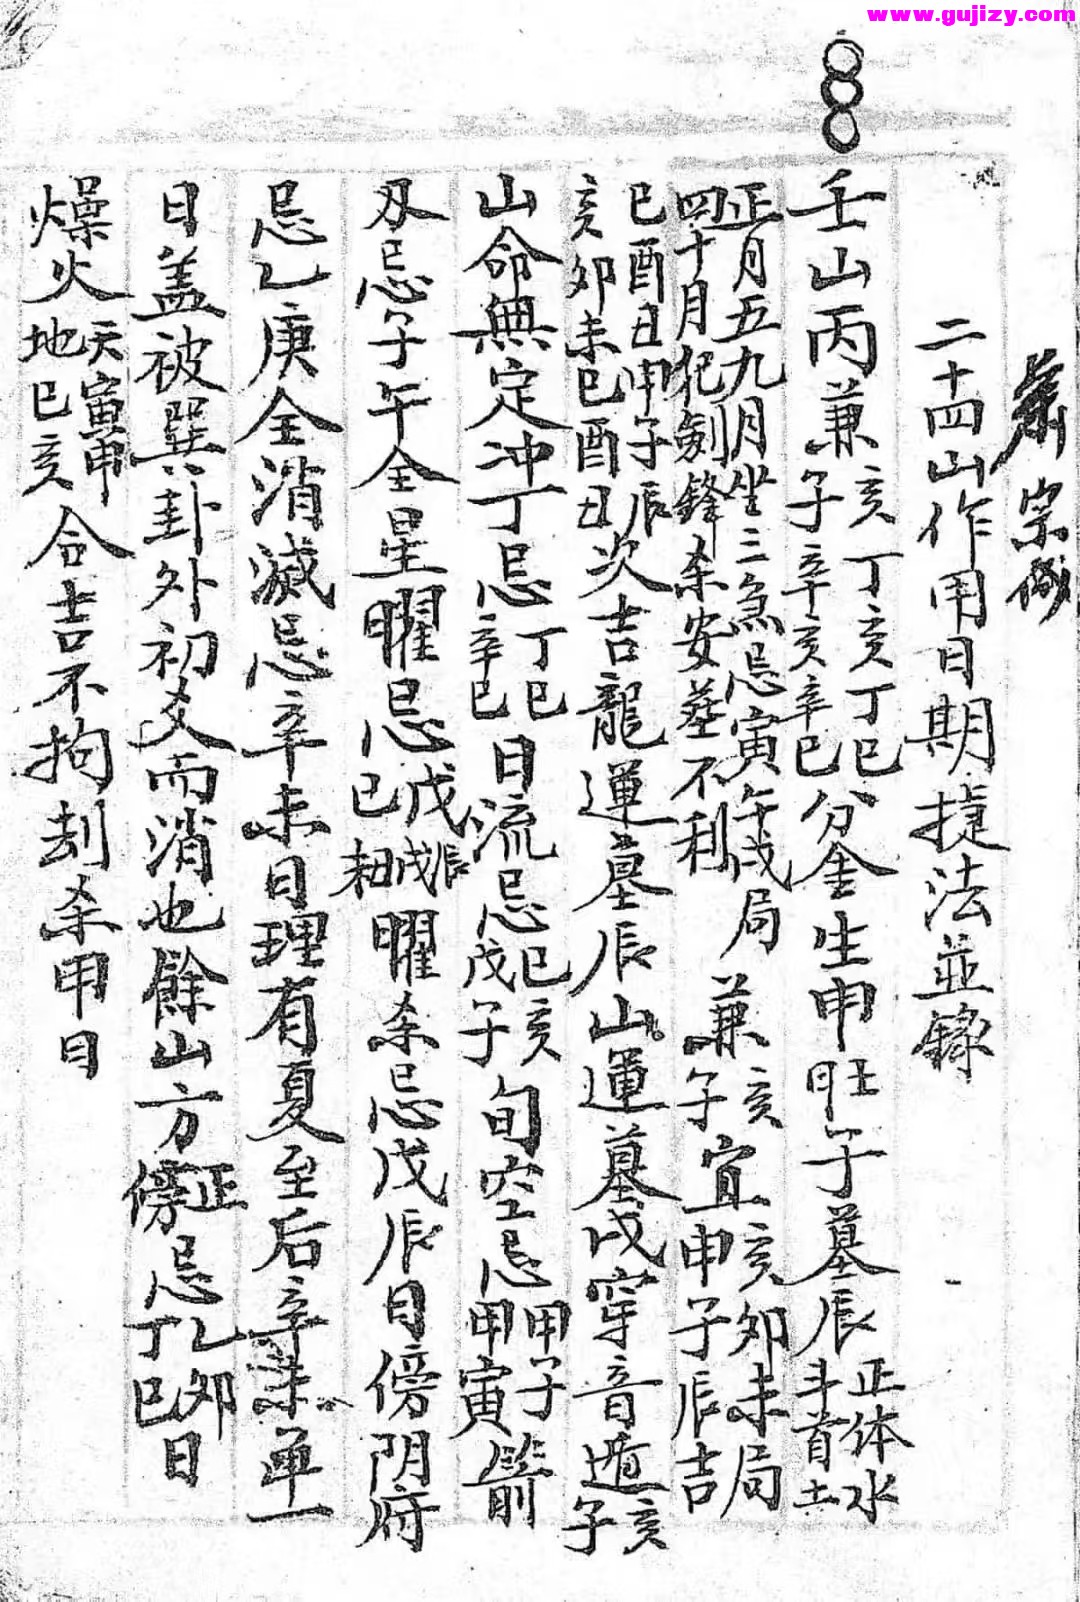 www.gujizy.com
宗
二十四山作用日期捷法並錄
壬山丙兼亥子丁亥辛亥丁巳辛巳分金生申旺子墓辰正体水斗首土
正月五九月坐三煞忌寅午戌局四十月犯劍鋒杀安葬不利兼亥子宜亥卯未局申子辰吉
巳酉丑申子辰亥卯未巳酉丑次吉龍運墓辰山運墓戌穿音遁亥子
山命無定冲丁忌丁巳辛巳日流忌己亥戊子旬空忌甲子甲寅箭
刃忌子午全星曜忌戊辰戊戌己曜杀忌戊辰日傍阴府
忌乙庚全消滅忌辛未日理有夏至后辛未单一
日盖被巽卦外初爻而消也餘山方正傍忌乙卯丁巳日
燥火天寅申地巳亥合吉不拘刦杀甲日